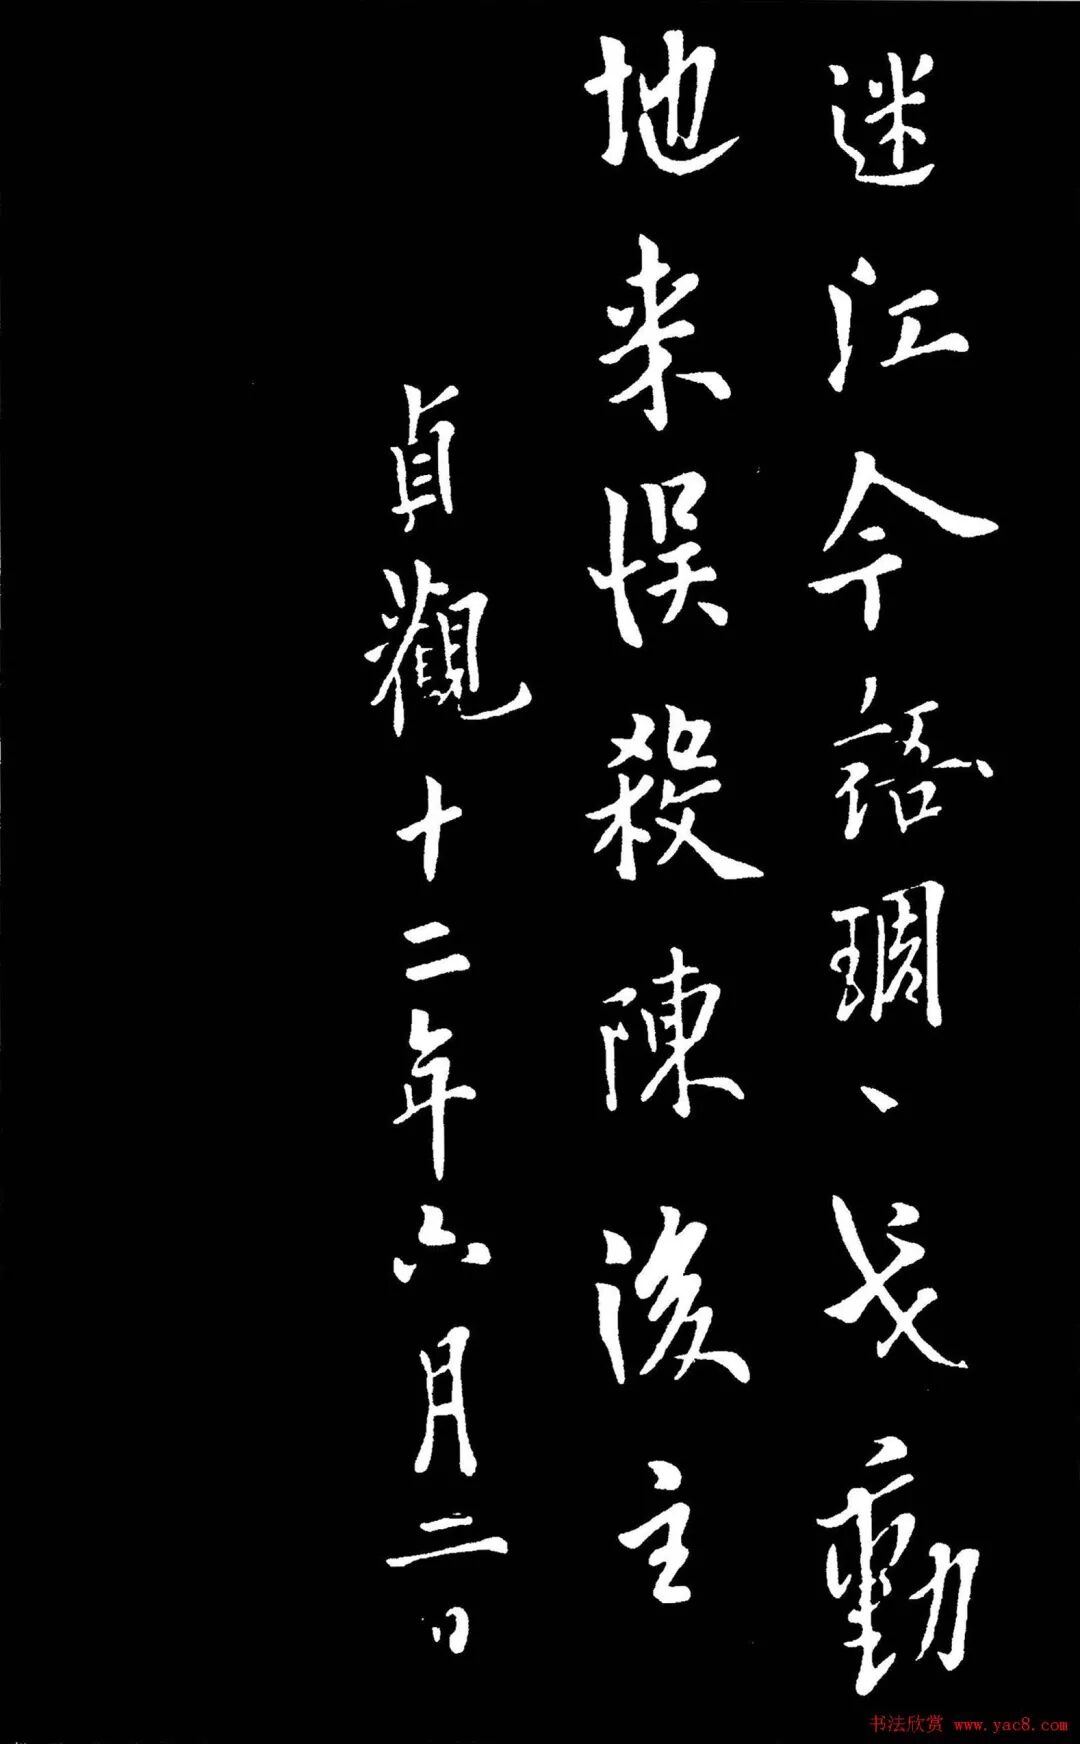 迷江令語琱、戈動
地来悮殺陳後主
貞觀十二年六月二日
书法欣赏 www.yac8.com